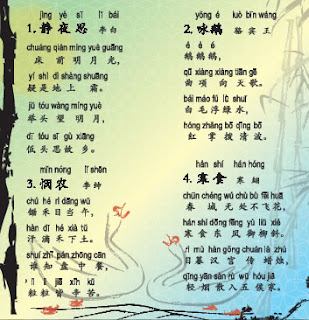 jìng yè sī lǐ bái
1.静夜思 李白
chuáng qián míng yuè guāng
床前明月光，
yí shì dì shàng shuāng
疑是地上霜。
jǔ tóu wàng míng yuè
举头望明月，
dī tóu sī gù xiāng
低头思故乡。
mǐn nóng lǐ shēn
3.悯农 李绅
chú hé rì dāng wǔ
锄禾日当午，
hàn dī hé xià tǔ
汗滴禾下土。
shuí zhī pán zhōng cān
谁知盘中餐，
lì lì jiē xīn kǔ
粒粒皆辛苦。
yǒng é luò bīn wáng
2.咏鹅 骆宾王
é é é
鹅鹅鹅，
qū xiàng xiàng tiān gē
曲项向天歌。
bái máo fú lǜ shuǐ
白毛浮绿水，
hóng zhǎng bō qīng bō
红掌拨清波。
hán shí hán hóng
4.寒食 寒翃
chūn chéng wú chù bù fēi huā
春城无处不飞花，
hán shí dōng fēng yù liǔ xié
寒食东风御柳斜。
rì mù hàn gōng chuán là zhú
日暮汉宫传蜡烛，
qīng yān sàn rù wǔ hóu jiā
轻烟散入五侯家。